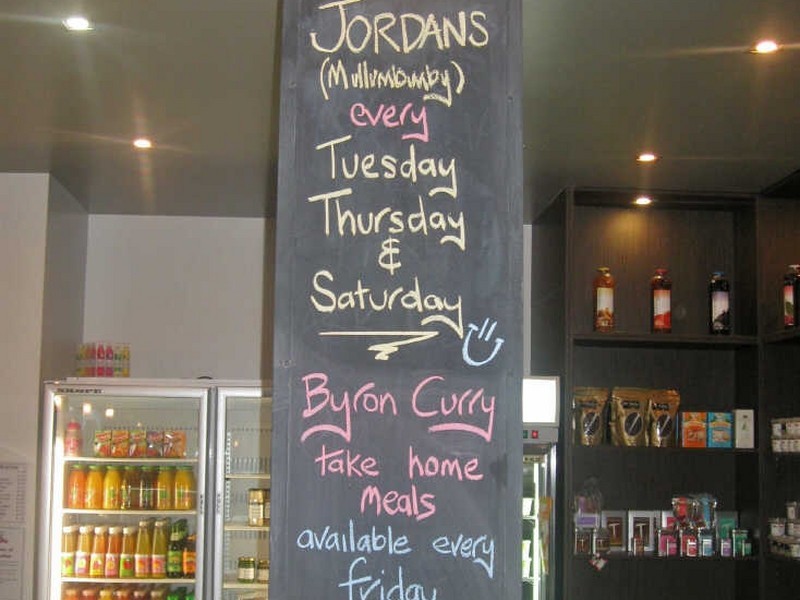 JORDANS
(Mullumbumby)
every
Tuesday
Thursday
&
Saturday
Byron Curry
take home
meals
available every
friday
SKOPE